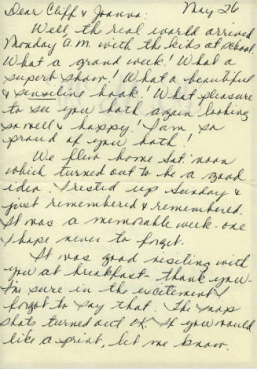 Dear Cliff & Joanna: May 26
Well, the real world arrived
Monday a.m. with the kids at school.
What a grand week! What a
superb show! What a beautiful
& sensitive book! What pleasure
to see you both again looking
so well & happy! I am so
proud of you both!
We flew home Sat. noon
which turned out to be a good
idea. I rested up Sunday &
just remembered & remembered.
It was a memorable week - one
I hope never to forget.
It was good visiting with
you at breakfast - thank you -
I'm sure in the excitement I
forgot to say that. The snap
shots turned out OK. If you would
like a print, let me know.